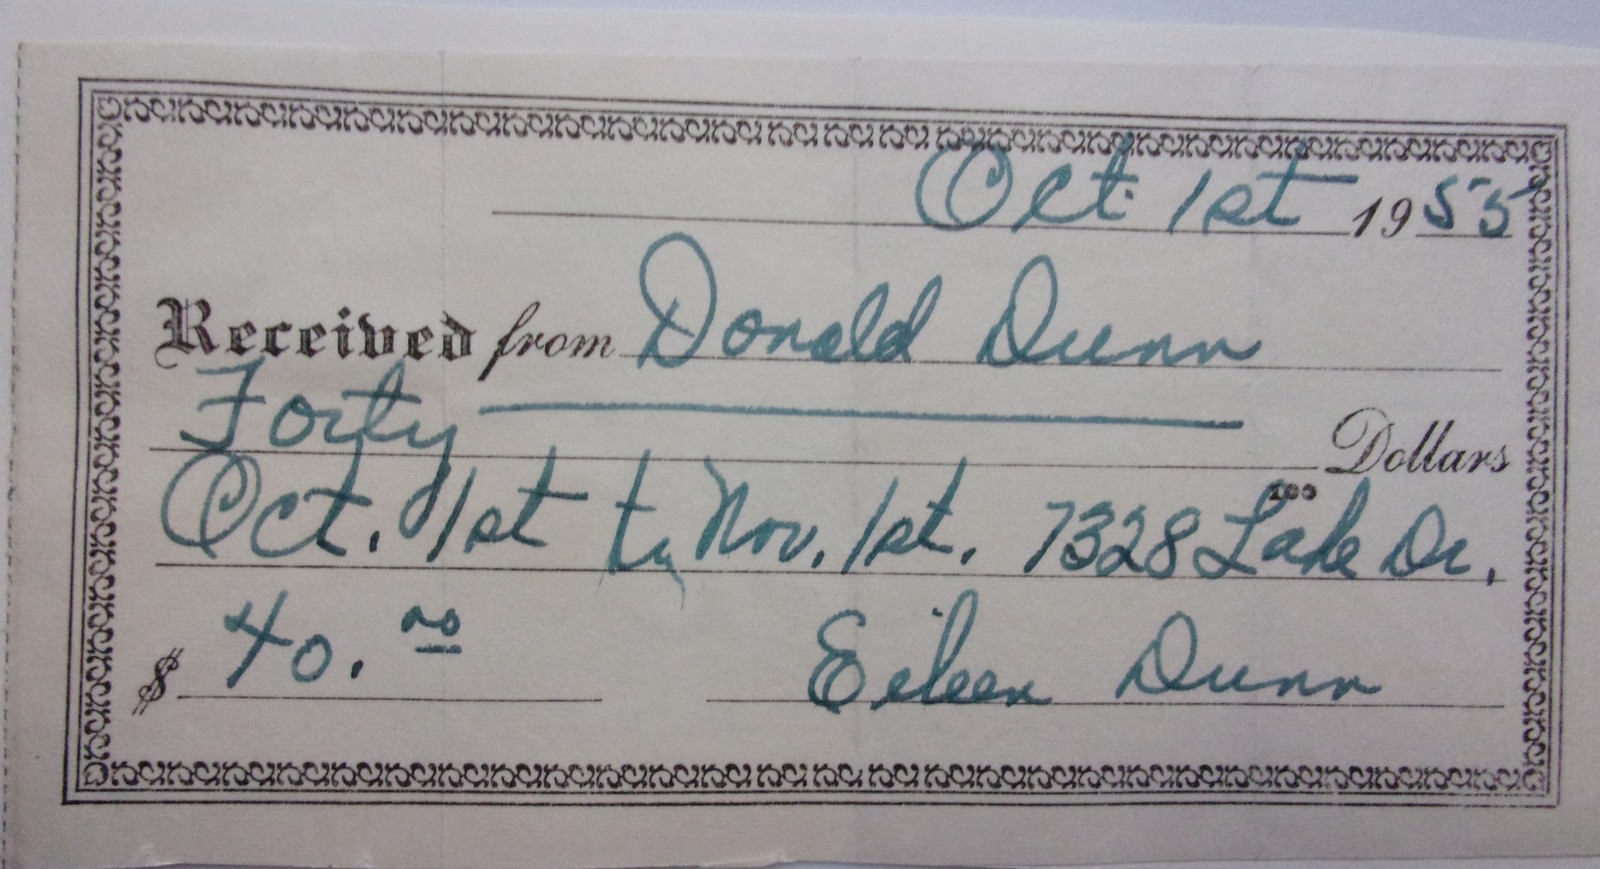 Oct. 1st 1955
Received from Donald Dunn
Forty Dollars
100
Oct. 1st to Nov. 1st. 7328 Lake Dr.
$ 40.00 Eileen Dunn